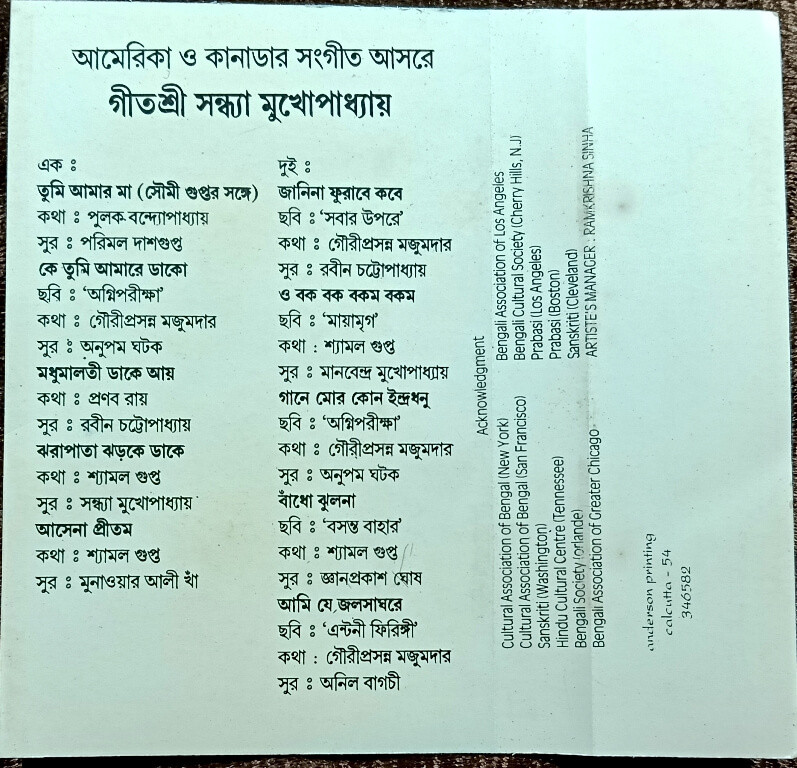 আমেরিকা ও কানাডার সংগীত আসরে
গীতশ্রী সন্ধ্যা মুখোপাধ্যায়
এক ঃ
তুমি আমার মা (সৌমী গুপ্তর সঙ্গে)
কথা ঃ পুলক বন্দ্যোপাধ্যায়
সুর ঃ পরিমল দাশগুপ্ত
কে তুমি আমারে ডাকো
ছবি ঃ ‘অগ্নিপরীক্ষা’
কথা ঃ গৌরীপ্রসন্ন মজুমদার
সুর ঃ অনুপম ঘটক
মধুমালতী ডাকে আয়
কথা ঃ প্রণব রায়
সুর ঃ রবীন চট্টোপাধ্যায়
ঝরাপাতা ঝড়কে ডাকে
কথা ঃ শ্যামল গুপ্ত
সুর ঃ সন্ধ্যা মুখোপাধ্যায়
আসেনা প্রীতম
কথা ঃ শ্যামল গুপ্ত
সুর ঃ মুনাওয়ার আলী খাঁ
দুই ঃ
জানিনা ফুরাবে কবে
ছবি ঃ ‘সবার উপরে’
কথা ঃ গৌরীপ্রসন্ন মজুমদার
সুর ঃ রবীন চট্টোপাধ্যায়
ও বক বক বকম বকম
ছবি ঃ ‘মায়ামৃগ’
কথা : শ্যামল গুপ্ত
সুর ঃ মানবেন্দ্র মুখোপাধ্যায়
গানে মোর কোন ইন্দ্রধনু
ছবি ঃ ‘অগ্নিপরীক্ষা’
কথা ঃ গৌরীপ্রসন্ন মজুমদার
সুর ঃ অনুপম ঘটক
বাঁধো ঝুলনা
ছবি ঃ ‘বসন্ত বাহার’
কথা ঃ শ্যামল গুপ্ত
সুর ঃ জ্ঞানপ্রকাশ ঘোষ
আমি যে জলসাঘরে
ছবি ঃ ‘এন্টনী ফিরিঙ্গী’
কথা : গৌরীপ্রসন্ন মজুমদার
সুর ঃ অনিল বাগচী
Acknowledgment
Cultural Association of Bengal (New York)
Cultural Association of Bengal (San Francisco)
Sanskriti (Washington)
Hindu Cultural Centre (Tennessee)
Bengali Society (orlande)
Bengali Association of Greater Chicago
Bengali Association of Los Angeles
Bengali Cultural Society (Cherry Hills, N.J)
Prabasi (Los Angeles)
Prabasi (Boston)
Sanskriti (Cleveland)
ARTISTE'S MANAGER : RAMKRISHNA SINHA
anderson printing
calcutta - 54
346582